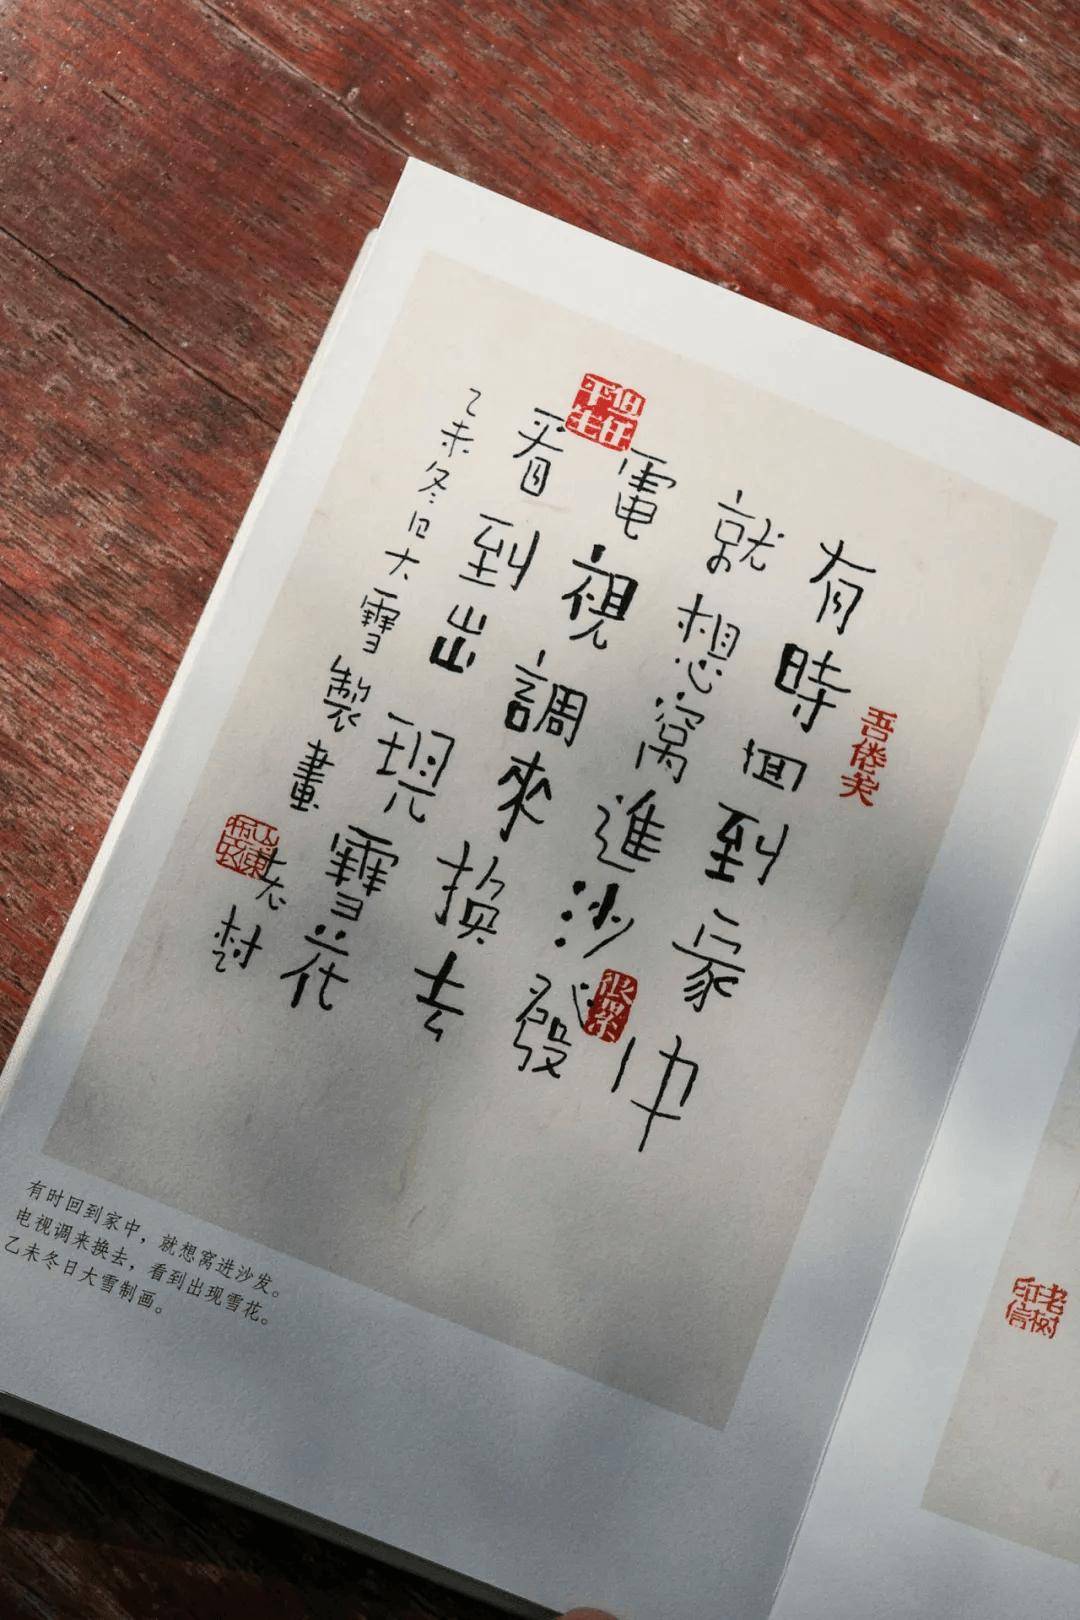 有時回到家中
就想窩進沙發
電視調來換去
看到出現雪花
乙未冬日大雪製畫
老樹
吾倦矣
但任
平生
很累
山東
布衣
有时回到家中，就想窝进沙发。
电视调来换去，看到出现雪花。
乙未冬日大雪制画。
老树
印信